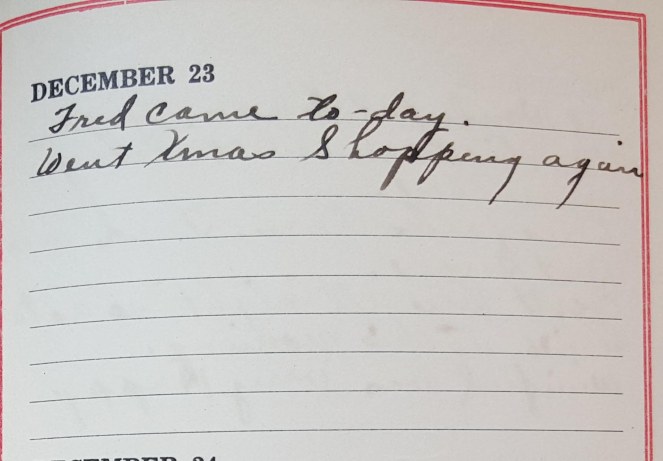 DECEMBER 23
Fred came to-day.
Went Xmas Shopping again
DECEMBER 24